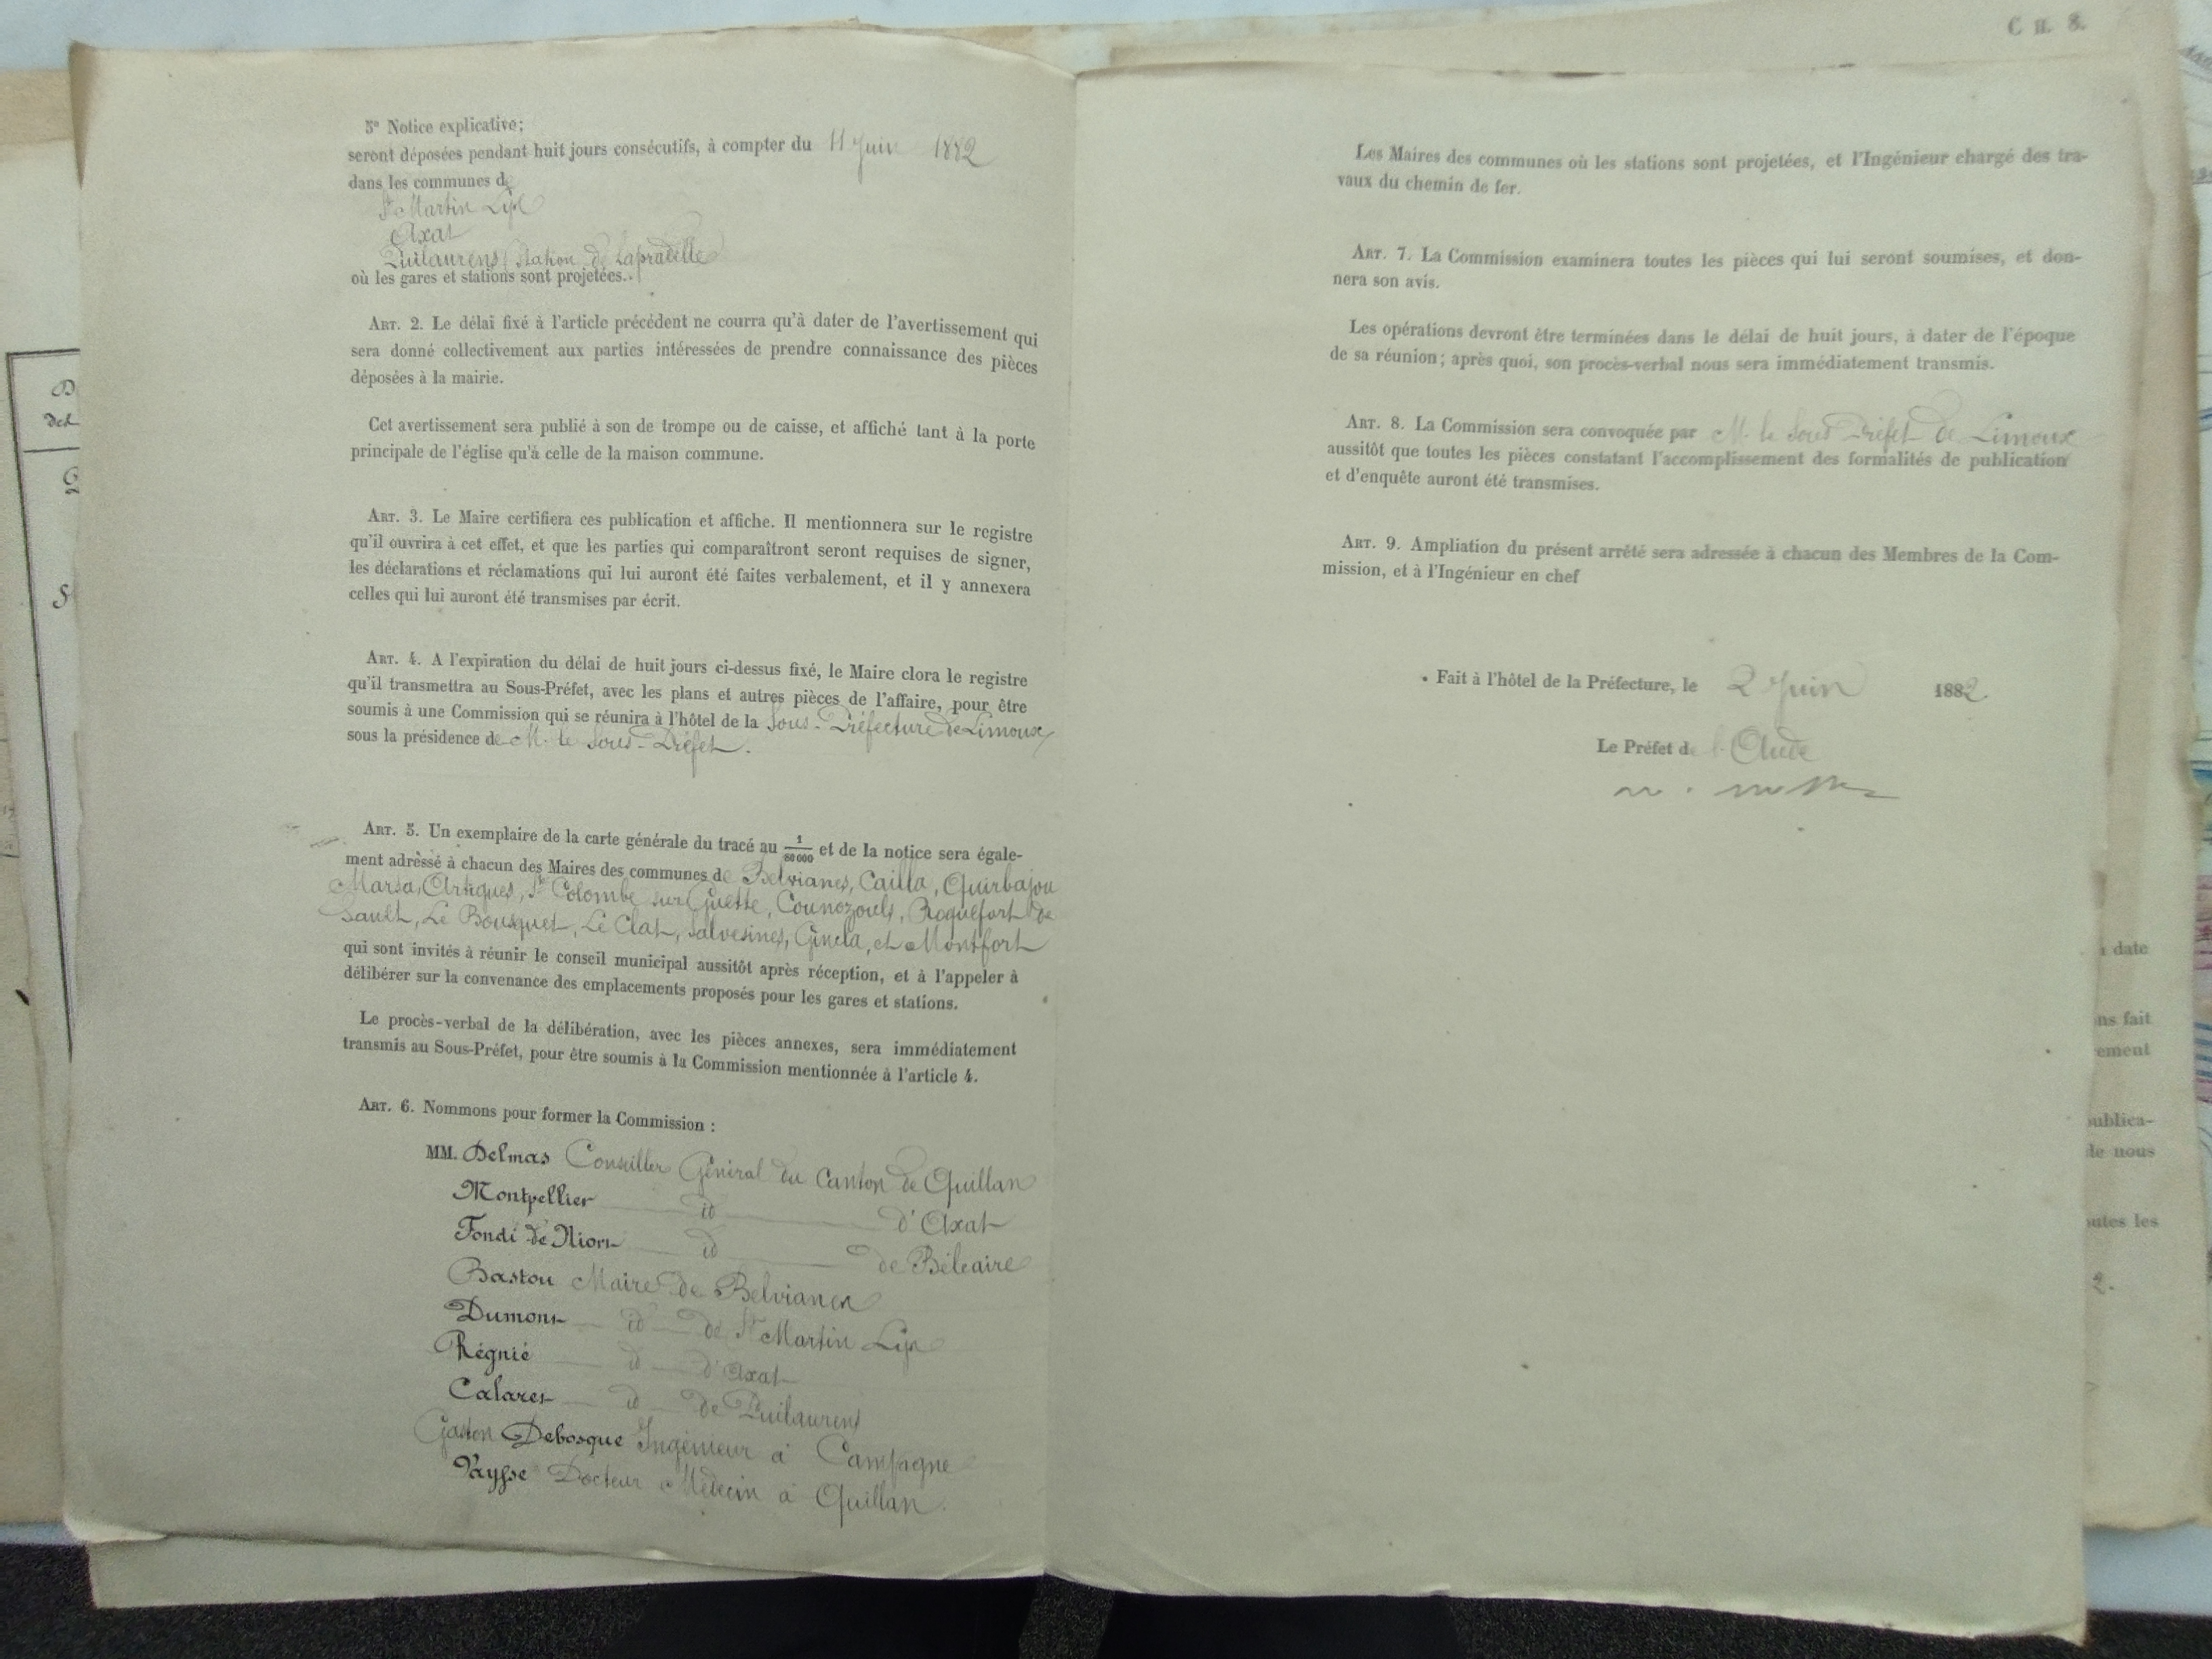 C n. 8.
5° Notice explicative;
seront déposées pendant huit jours consécutifs, à compter du 11 Juin 1882
dans les communes de
St Martin Lys
Axat
Puilaurens (Station de Lapradelle
où les gares et stations sont projetées.
ART. 2. Le délai fixé à l'article précédent ne courra qu'à dater de l'avertissement qui
sera donné collectivement aux parties intéressées de prendre connaissance des pièces
déposées à la mairie.
Cet avertissement sera publié à son de trompe ou de caisse, et affiché tant à la porte
principale de l'église qu'à celle de la maison commune.
ART. 3. Le Maire certifiera ces publication et affiche. Il mentionnera sur le registre
qu'il ouvrira à cet effet, et que les parties qui comparaîtront seront requises de signer,
les déclarations et réclamations qui lui auront été faites verbalement, et il y annexera
celles qui lui auront été transmises par écrit.
ART. 4. A l'expiration du délai de huit jours ci-dessus fixé, le Maire clora le registre
qu'il transmettra au Sous-Préfet, avec les plans et autres pièces de l'affaire, pour être
soumis à une Commission qui se réunira à l'hôtel de la Sous-Préfecture de Limoux
sous la présidence de M. le Sous-Préfet.
ART. 5. Un exemplaire de la carte générale du tracé au 1/80 000 et de la notice sera égale-
ment adressé à chacun des Maires des communes de Belvianes, Cailla, Quirbajou
Marsa, Artigues, Ste Colombe sur Guette, Counozouls, Roquefort de
Sault, Le Bousquet, Le Clat, Salvesines, Gincla, et Montfort
qui sont invités à réunir le conseil municipal aussitôt après réception, et à l'appeler à
délibérer sur la convenance des emplacements proposés pour les gares et stations.
Le procès-verbal de la délibération, avec les pièces annexes, sera immédiatement
transmis au Sous-Préfet, pour être soumis à la Commission mentionnée à l'article 4.
ART. 6. Nommons pour former la Commission :
MM. Delmas Conseiller Général du Canton de Quillan
Montpellier id d'Axat
Fondi de Niort id de Belcaire
Bastou Maire de Belvianes
Dumont id de St Martin Lys
Régnié id d'Axat
Calaret id de Puilaurens
Gaston Debosque Ingénieur à Campagne
Vaysse Docteur Médecin à Quillan.
Les Maires des communes où les stations sont projetées, et l'Ingénieur chargé des tra-
vaux du chemin de fer.
ART. 7. La Commission examinera toutes les pièces qui lui seront soumises, et don-
nera son avis.
Les opérations devront être terminées dans le délai de huit jours, à dater de l'époque
de sa réunion; après quoi, son procès-verbal nous sera immédiatement transmis.
ART. 8. La Commission sera convoquée par M. le Sous Préfet de Limoux
aussitôt que toutes les pièces constatant l'accomplissement des formalités de publication
et d'enquête auront été transmises.
ART. 9. Ampliation du présent arrêté sera adressée à chacun des Membres de la Com-
mission, et à l'Ingénieur en chef
Fait à l'hôtel de la Préfecture, le 2 Juin 1882.
Le Préfet de l'Aude
date
ns fait
ement
publica-
de nous
utes les
2.